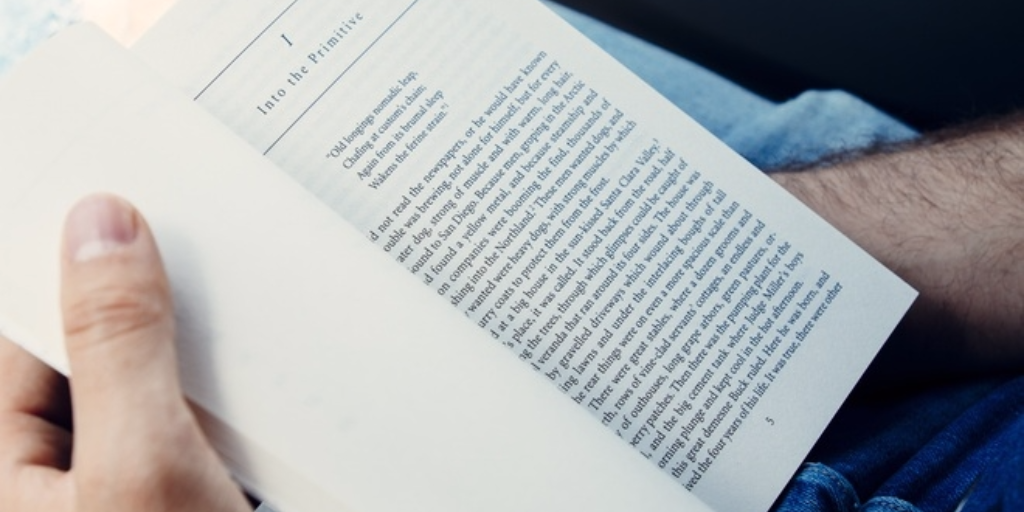 I
Into the Primitive
"Old longings nomadic leap,
Chafing at custom's chain;
Again from its brumal sleep
Wakens the ferine strain."
d not read the newspapers, or he would have known
ouble was brewing, not alone for himself, but for every
ater dog, strong of muscle and with warm, long hair,
ound to San Diego. Because men, groping in the Arctic
d found a yellow metal, and because steamship and
on companies were booming the find, thousands of
shing into the Northland. These men wanted dogs, and
wanted were heavy dogs, with strong muscles by which
urry coats to protect them from the frost.
d at a big house in the sun-kissed Santa Clara Valley.
's place, it was called. It stood back from the road, half
ng the trees, through which glimpses could be caught of
l veranda that ran around its four sides. The house was
by gravelled driveways which wound about through
ing lawns and under the interlacing boughs of tall
he rear things were on even a more spacious scale than
There were great stables, where a dozen grooms and
rth, rows of vine-clad servants' cottages, an endless and
y of outhouses, long grape arbors, green pastures, or-
berry patches. Then there was the pumping plant for the
l, and the big cement tank where Judge Miller's boys
orning plunge and kept cool in the hot afternoon.
this great demesne Buck ruled. Here he was born, and
ived the four years of his life. It was true, there were other
5